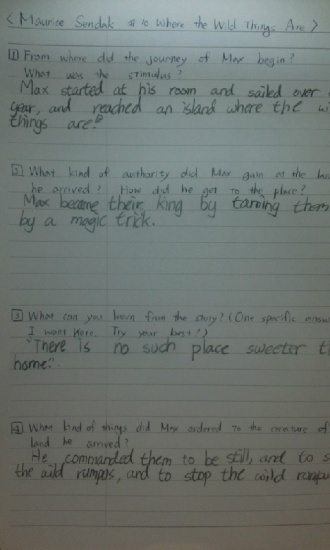 < Maurice Sendak 의 Where the Wild Things Are >
1 From where did the journey of Max begin?
What was the stimulus?
Max started at his room and sailed over
year, and reached an island where the wi
things are."
2 What kind of authority did Max gain at the
he arrived? How did he get to the place?
Max became their king by taming them
by a magic trick.
3 What can you learn from the story? (One specific answ
I want more. Try your best!)
"There is no such place sweeter t
home."
4 What kind of things did Max ordered to the creature of
land he arrived?
He commanded them to be still, and to s
the wild rumpus, and to stop the wild rumpu